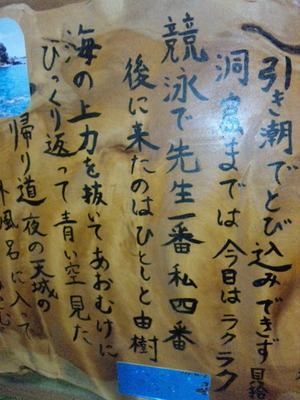 引き潮でとび込みできず
洞窟までは今日はラクラク
競泳で先生一番私四番
後に来たのはひとしと由樹
海の上力を抜いてあおむけに
ひっくり返って青い空見た
帰り道夜の天城の
外風呂に入って